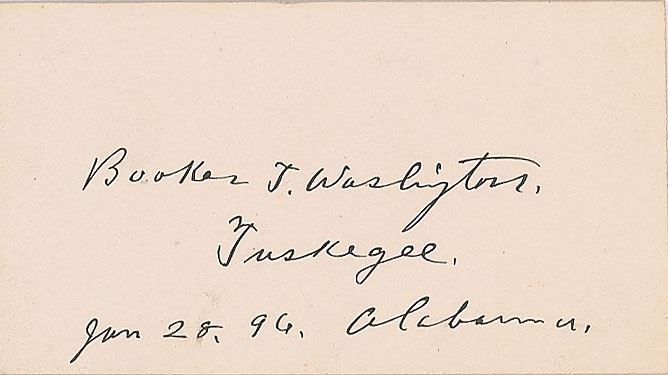 Booker T. Washington.
Tuskegee.
Jan 28. 96. Alabama.